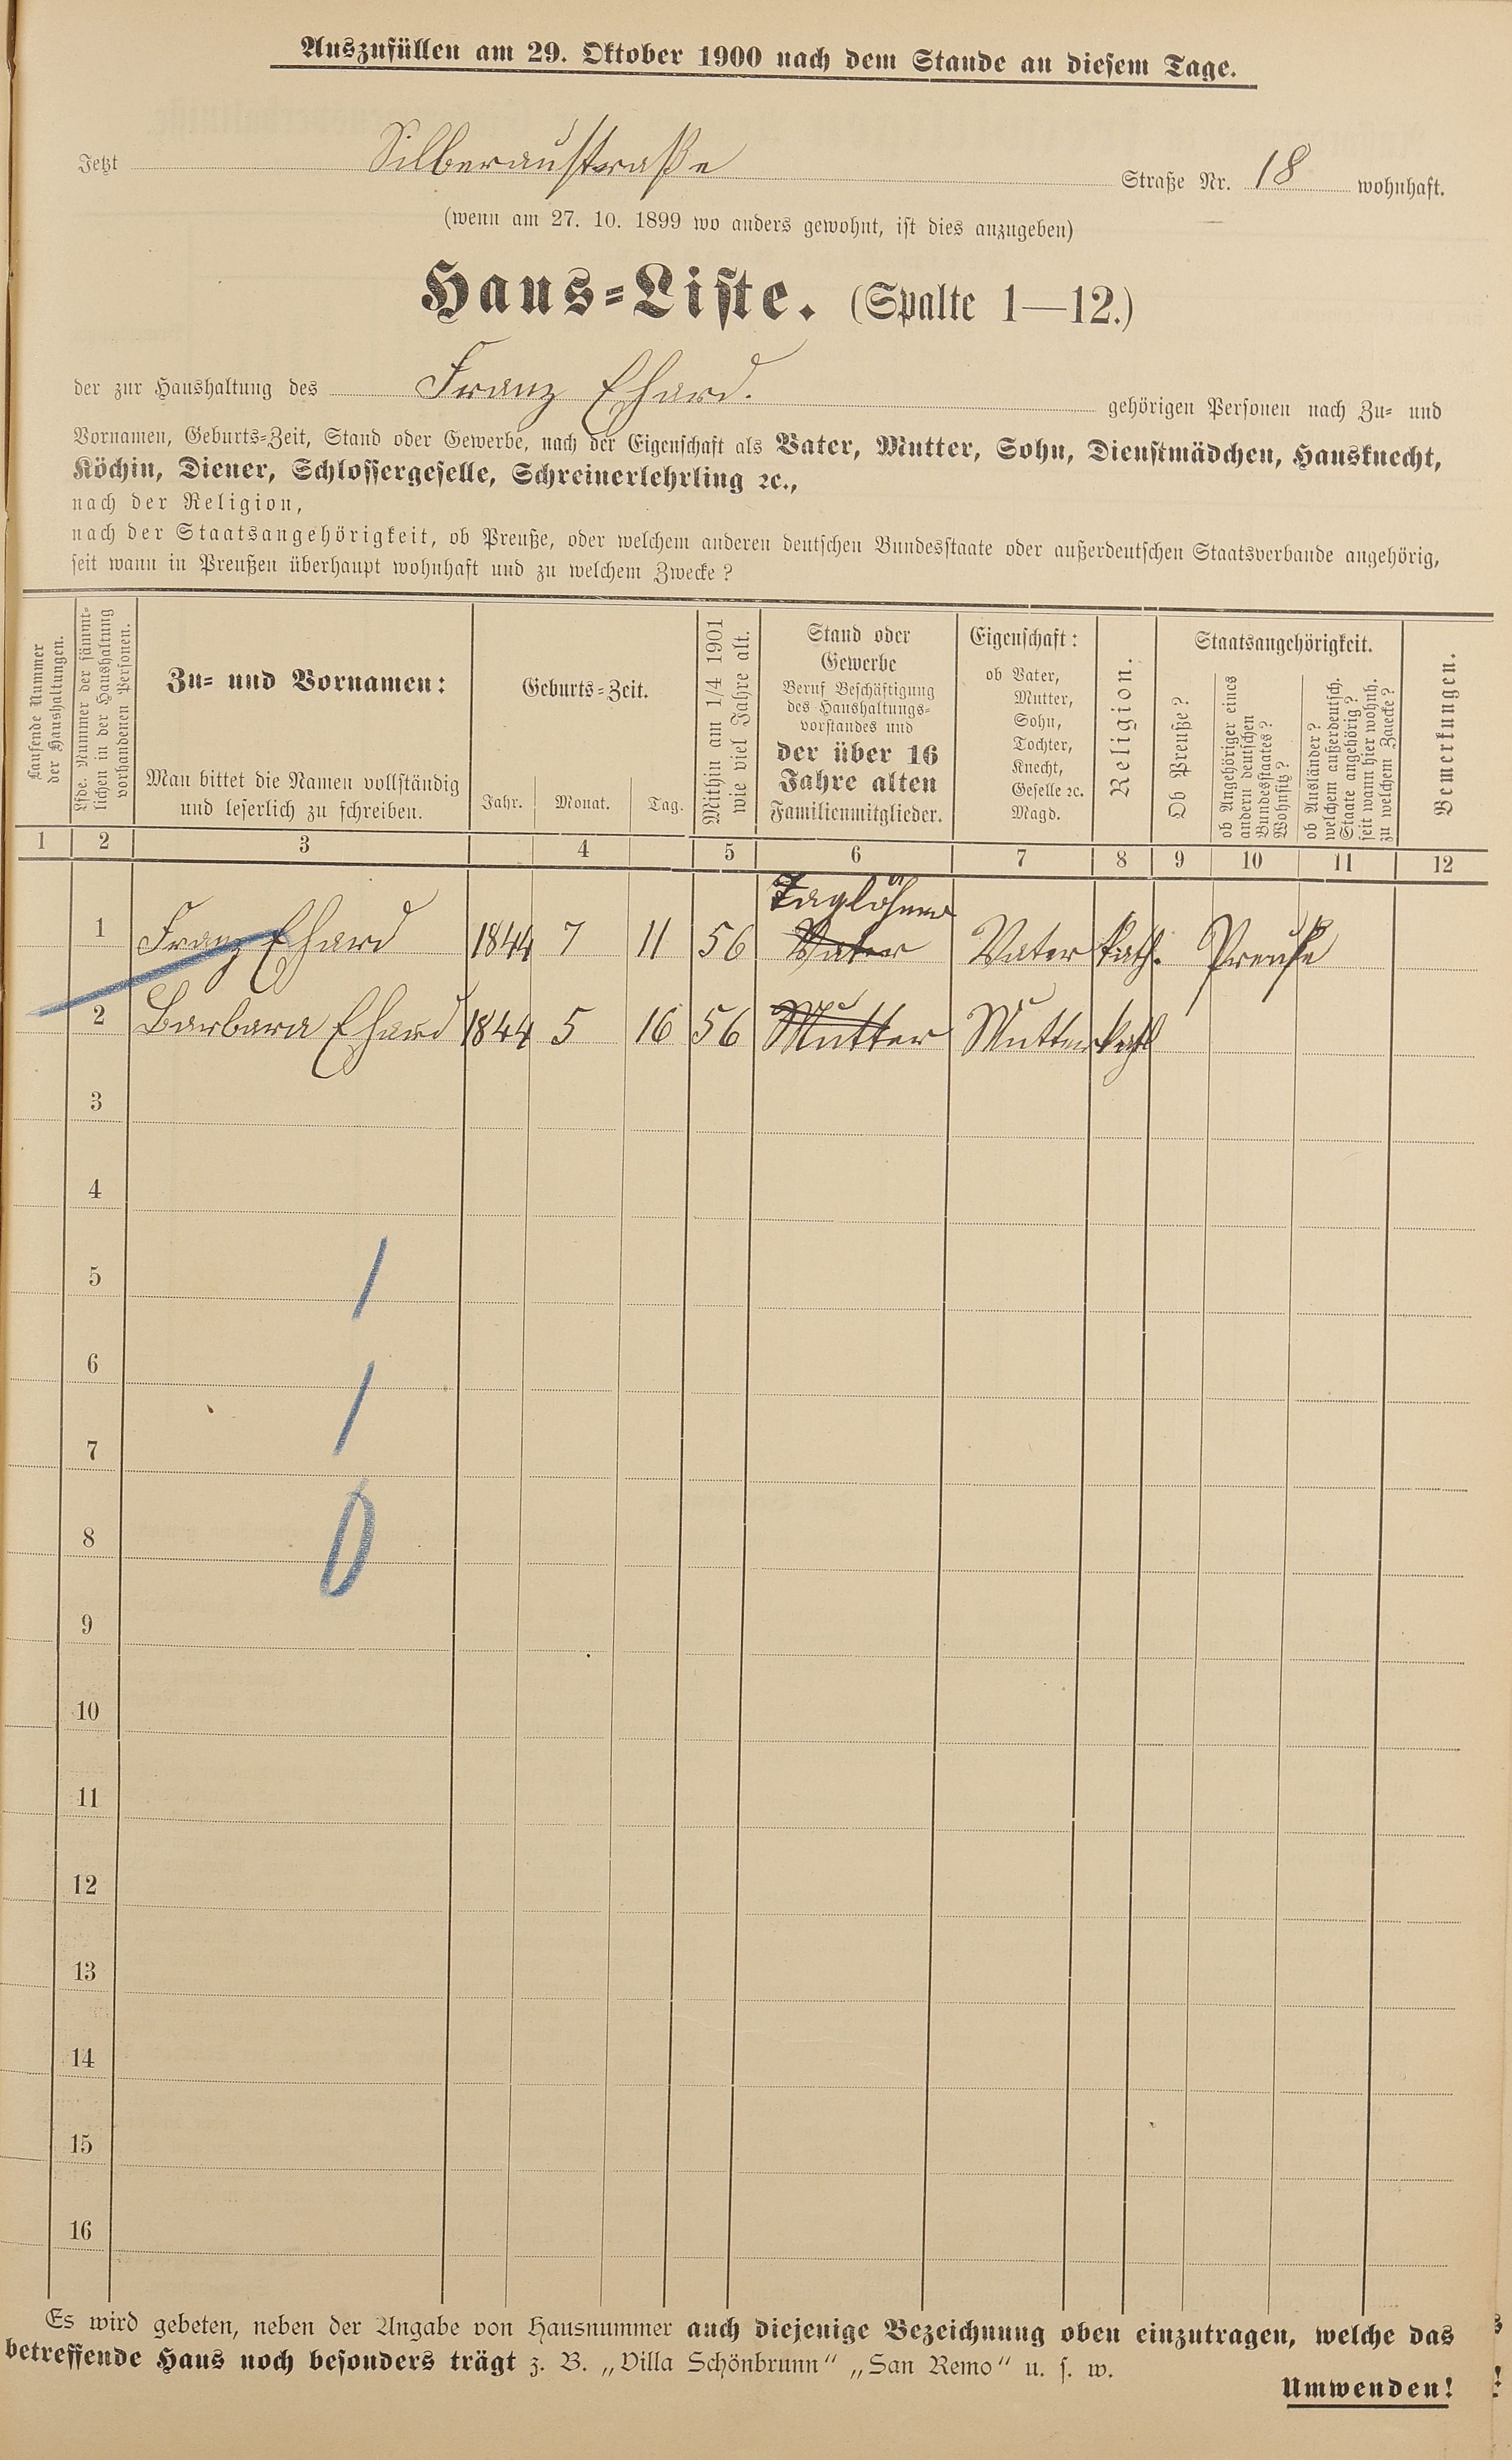 Auszufüllen am 29. Oktober 1900 nach dem Stande an diesem Tage.
Jetzt Silberaustraße Straße Nr. 18 wohnhaft.
(wenn am 27. 10. 1899 wo anders gewohnt, ist dies anzugeben)
Haus-Liste. (Spalte 1—12.)
der zur Haushaltung des Franz Ehard. gehörigen Personen nach Zu- und
Vornamen, Geburts-Zeit, Stand oder Gewerbe, nach der Eigenschaft als Vater, Mutter, Sohn, Dienstmädchen, Hausknecht,
Köchin, Diener, Schlossergeselle, Schreinerlehrling ꝛc.,
nach der Religion,
nach der Staatsangehörigkeit, ob Preuße, oder welchem anderen deutschen Bundesstaate oder außerdeutschen Staatsverbande angehörig,
seit wann in Preußen überhaupt wohnhaft und zu welchem Zwecke?
Laufende Nummer
der Haushaltungen.
Lfde. Nummer der sämmt-
lichen in der Haushaltung
vorhandenen Personen.
Zu- und Vornamen:
Man bittet die Namen vollständig
und leserlich zu schreiben.
Geburts-Zeit.
Jahr. Monat. Tag.
Mithin am 1/4 1901
wie viel Jahre alt.
Stand oder
Gewerbe
Beruf Beschäftigung
des Haushaltungs-
vorstandes und
der über 16
Jahre alten
Familienmitglieder.
Eigenschaft:
ob Vater,
Mutter,
Sohn,
Tochter,
Knecht,
Geselle ꝛc.
Magd.
Religion.
Staatsangehörigkeit.
Ob Preuße?
ob Angehöriger eines
andern deutschen
Bundesstaates?
Wohnsitz?
ob Ausländer?
welchem außerdeutsch.
Staate angehörig?
seit wann hier wohnh.
zu welchem Zwecke?
Bemerkungen.
1 2 3 4 5 6 7 8 9 10 11 12
Taglöhner
1 Franz Ehard 1844 7 11 56 Vater Vater kath. Preuße
2 Barbara Ehard 1844 5 16 56 Mutter Mutter kath
3
4
5
/
6
/
7
8
0
9
10
11
12
13
14
15
16
Es wird gebeten, neben der Angabe von Hausnummer auch diejenige Bezeichnung oben einzutragen, welche das
betreffende Haus noch besonders trägt z. B. „Villa Schönbrunn“ „San Remo“ u. s. w.
Umwenden!